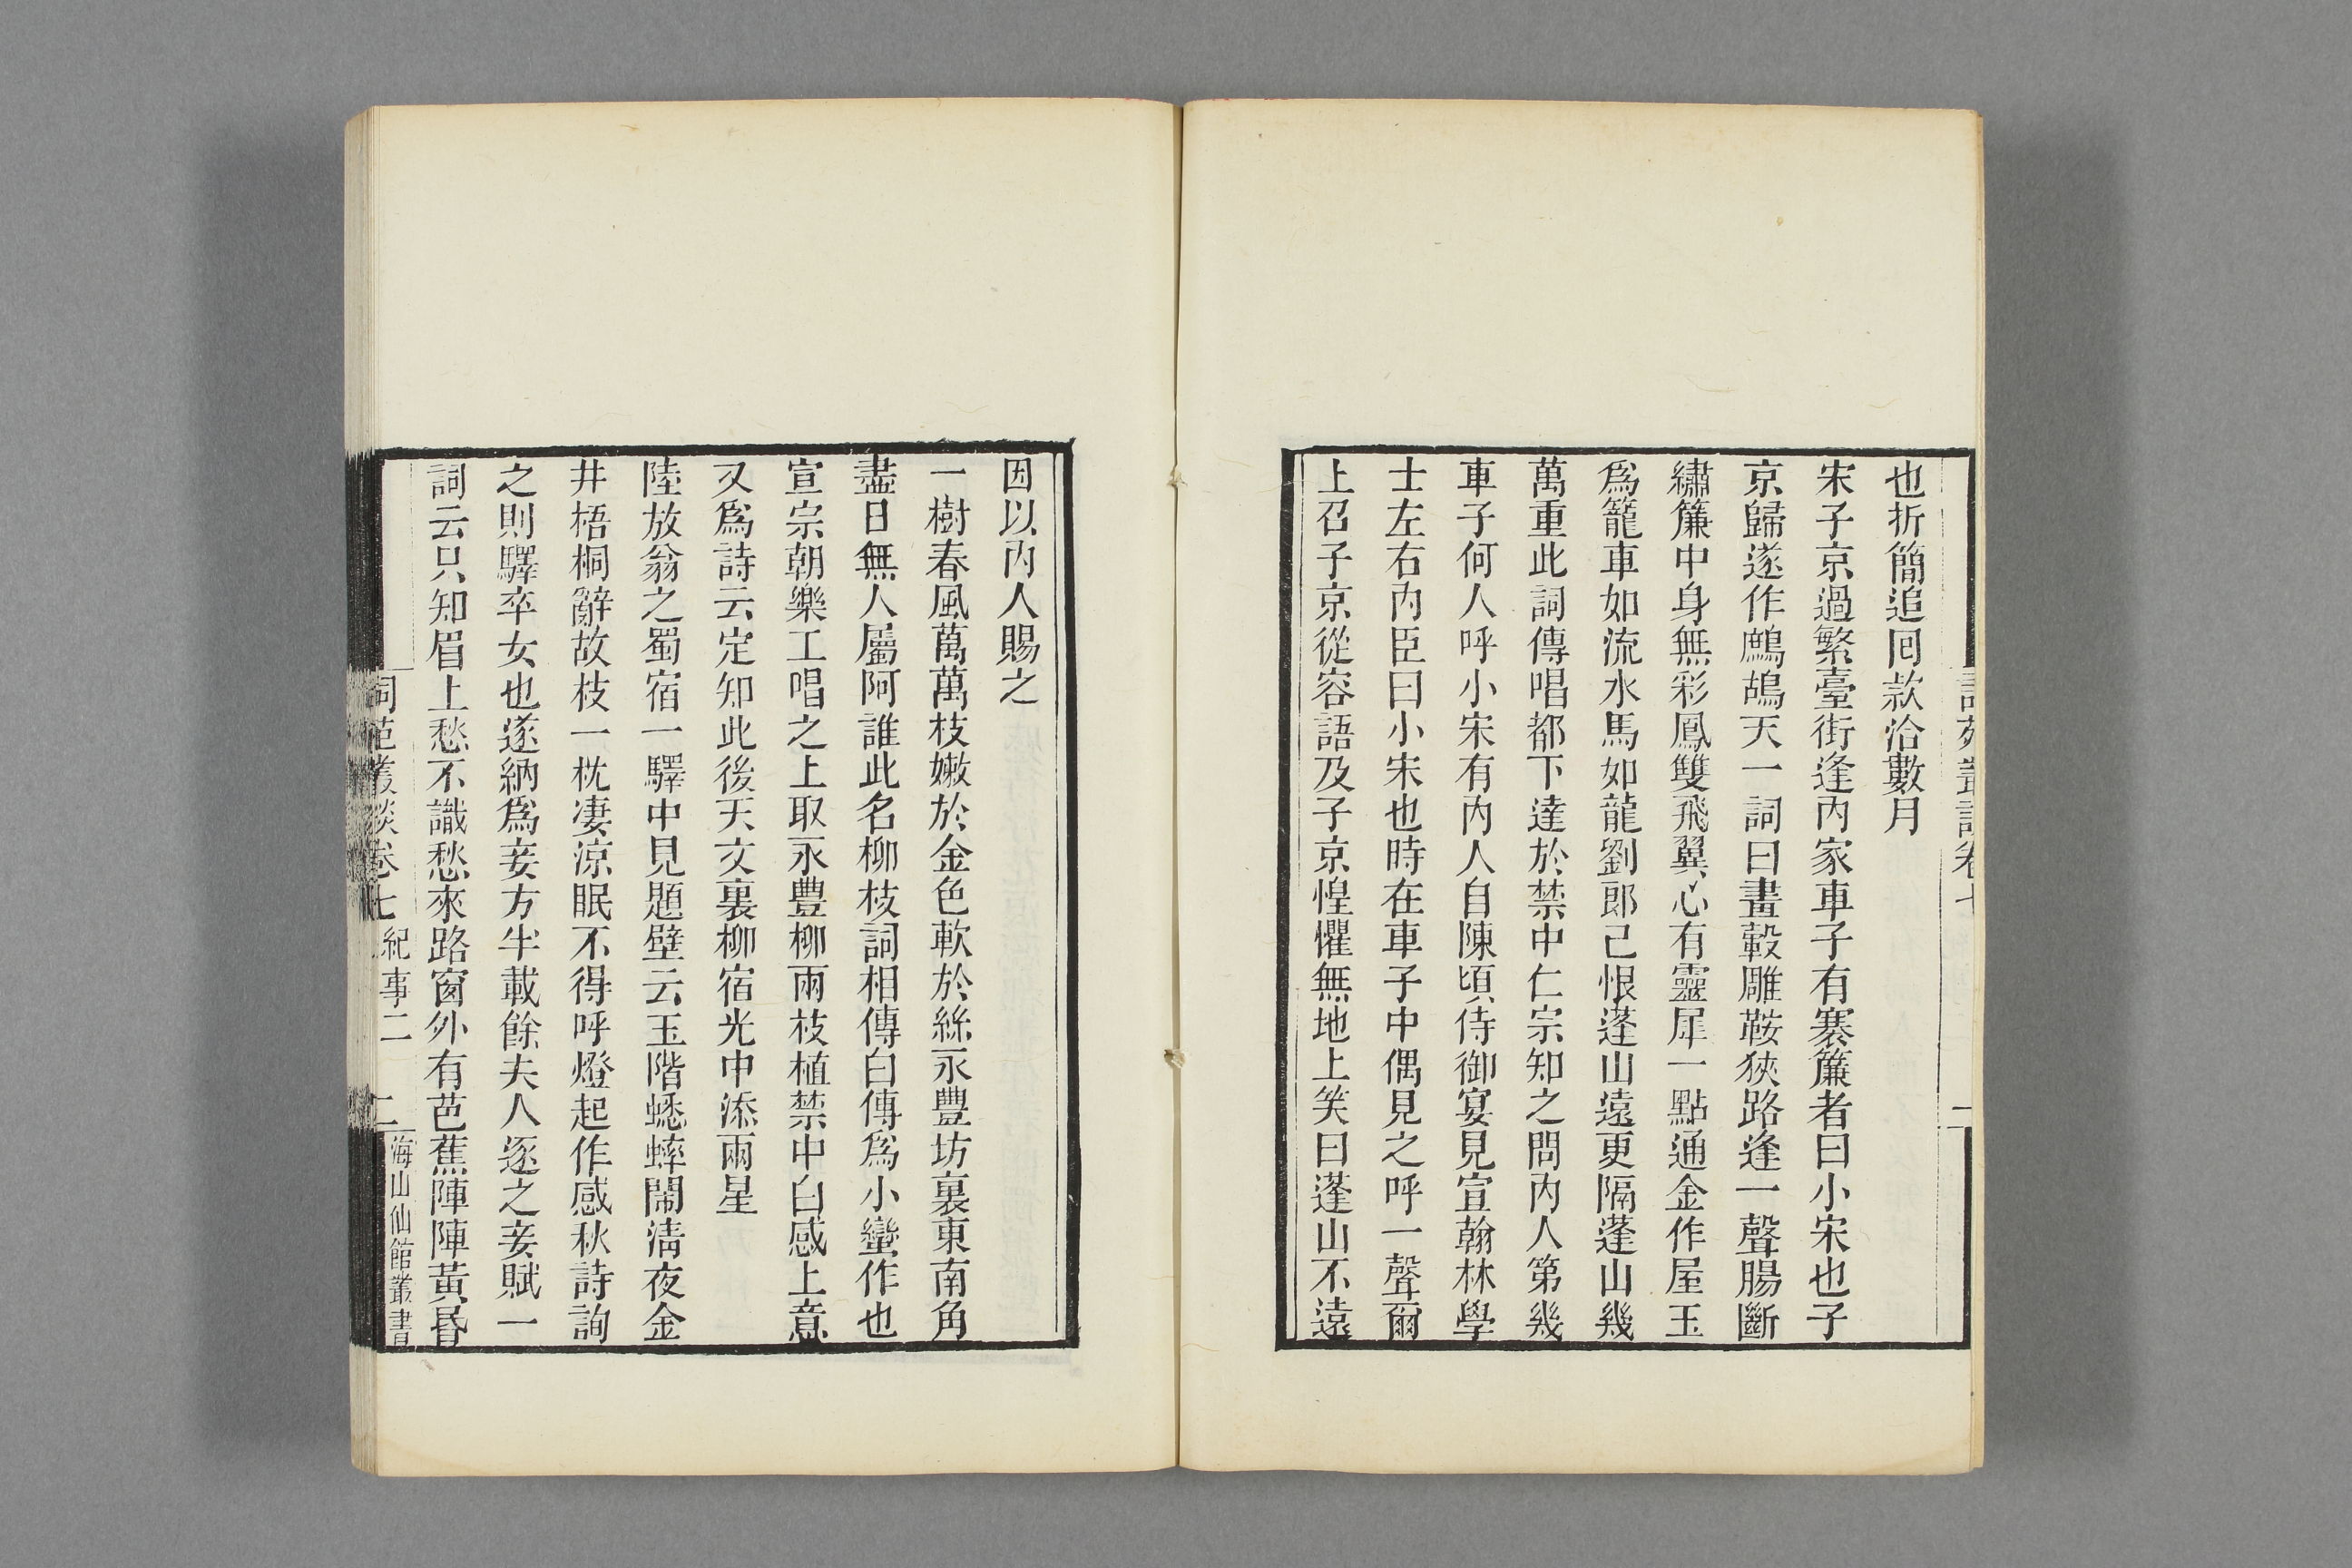 也折簡追囘款洽數月
宋子京過繁臺街逢內家車子有褰簾者曰小宋也子
京歸遂作鷓鴣天一詞曰畫轂雕鞍狹路逢一聲腸斷
繡簾中身無彩鳳雙飛翼心有靈犀一點通金作屋玉
爲籠車如流水馬如龍劉郎已恨蓬山遠更隔蓬山幾
萬重此詞傳唱都下達於禁中仁宗知之問內人第幾
車子何人呼小宋有內人自陳頃侍御宴見宣翰林學
士左右內臣曰小宋也時在車子中偶見之呼一聲爾
上召子京從容語及子京惶懼無地上笑曰蓬山不遠
因以內人賜之
一樹春風萬萬枝嫩於金色軟於絲永豐坊裏東南角
盡日無人屬阿誰此名柳枝詞相傳白傅爲小蠻作也
宣宗朝樂工唱之上取永豐柳兩枝植禁中白感上意
又爲詩云定知此後天文裏柳宿光中添兩星
陸放翁之蜀宿一驛中見題壁云玉階蟋蟀鬧清夜金
井梧桐辭故枝一枕凄涼眠不得呼燈起作感秋詩詢
之則驛卒女也遂納爲妾方半載餘夫人逐之妾賦一
詞云只知眉上愁不識愁來路窗外有芭蕉陣陣黃昏
詞苑叢談卷七 紀事二 二 海山仙館叢書